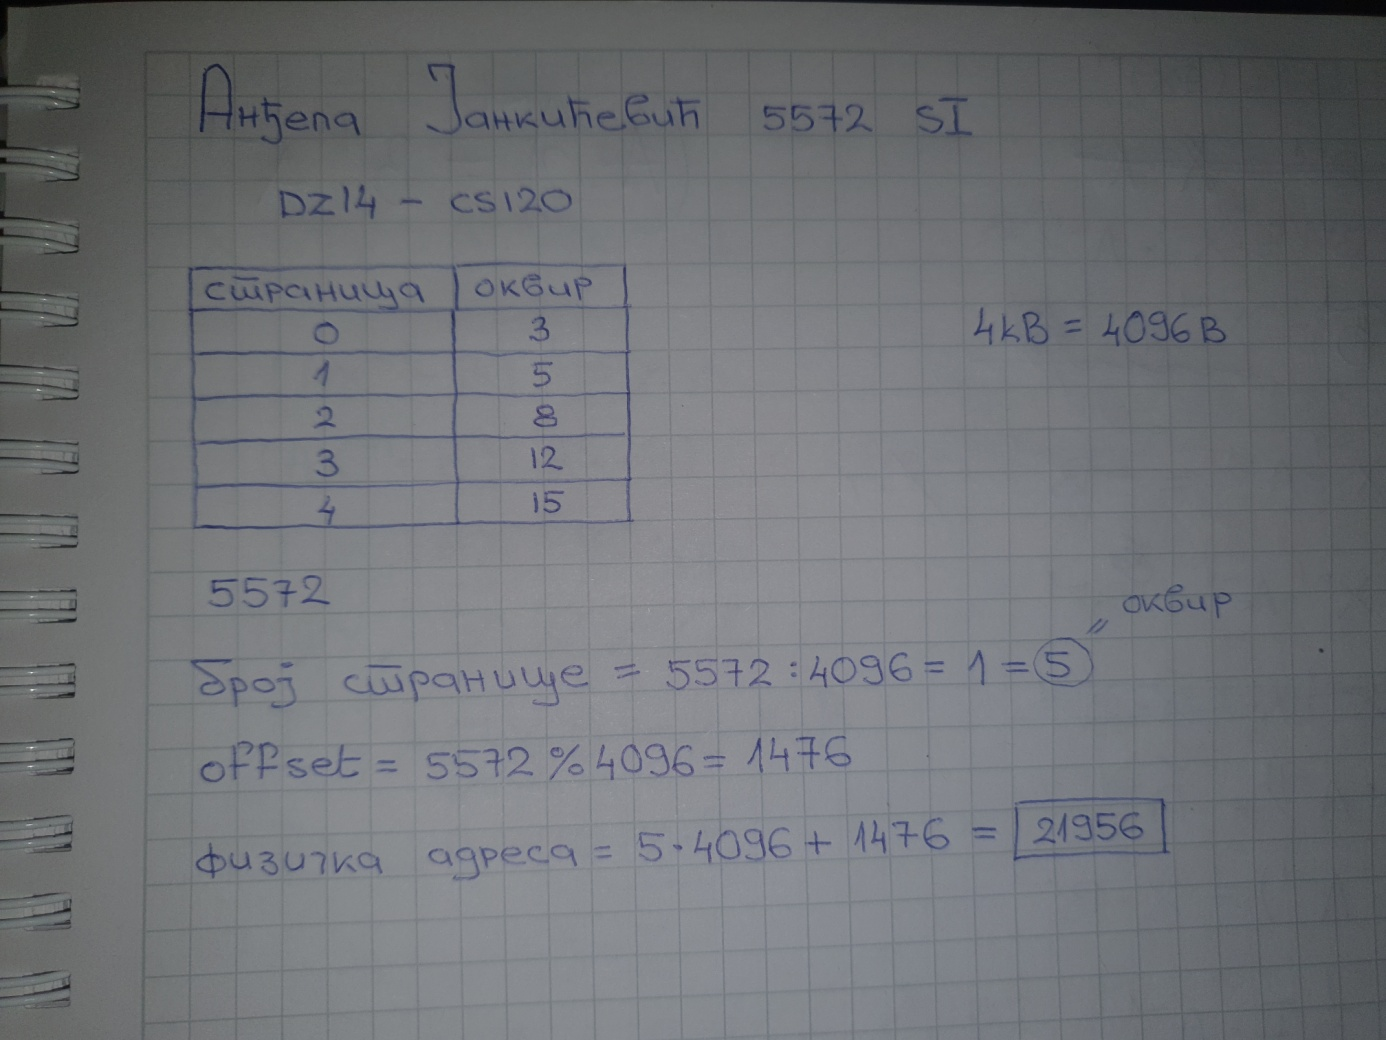 Анђела Јанкићевић 5572 SI
DZ14 - CS120
страница оквир
0 3
4kB = 4096B
1 5
2 8
3 12
4 15
5572
оквир
број странице = 5572 : 4096 = 1 = 5
offset = 5572 % 4096 = 1476
физичка адреса = 5 · 4096 + 1476 = 21956